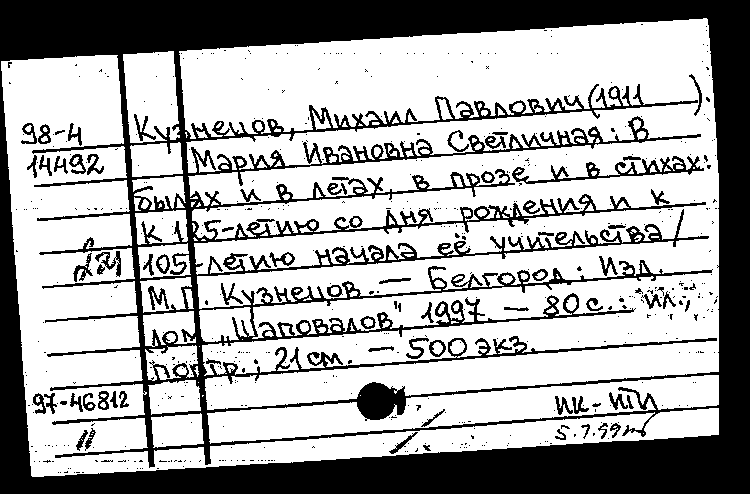 98-4
14492
Кузнецов, Михаил Павлович (1911 ).
Мария Ивановна Светличная: В
былях и в летах, в прозе и в стихах:
к 125-летию со дня рождения и к
105-летию начала её учительства /
М.П. Кузнецов. — Белгород: Изд.
дом „Шаповалов", 1997. — 80 с.: ил.,
портр.; 21 см. — 500 экз.
97-46812
11
ИК-НТИ
5.7.99